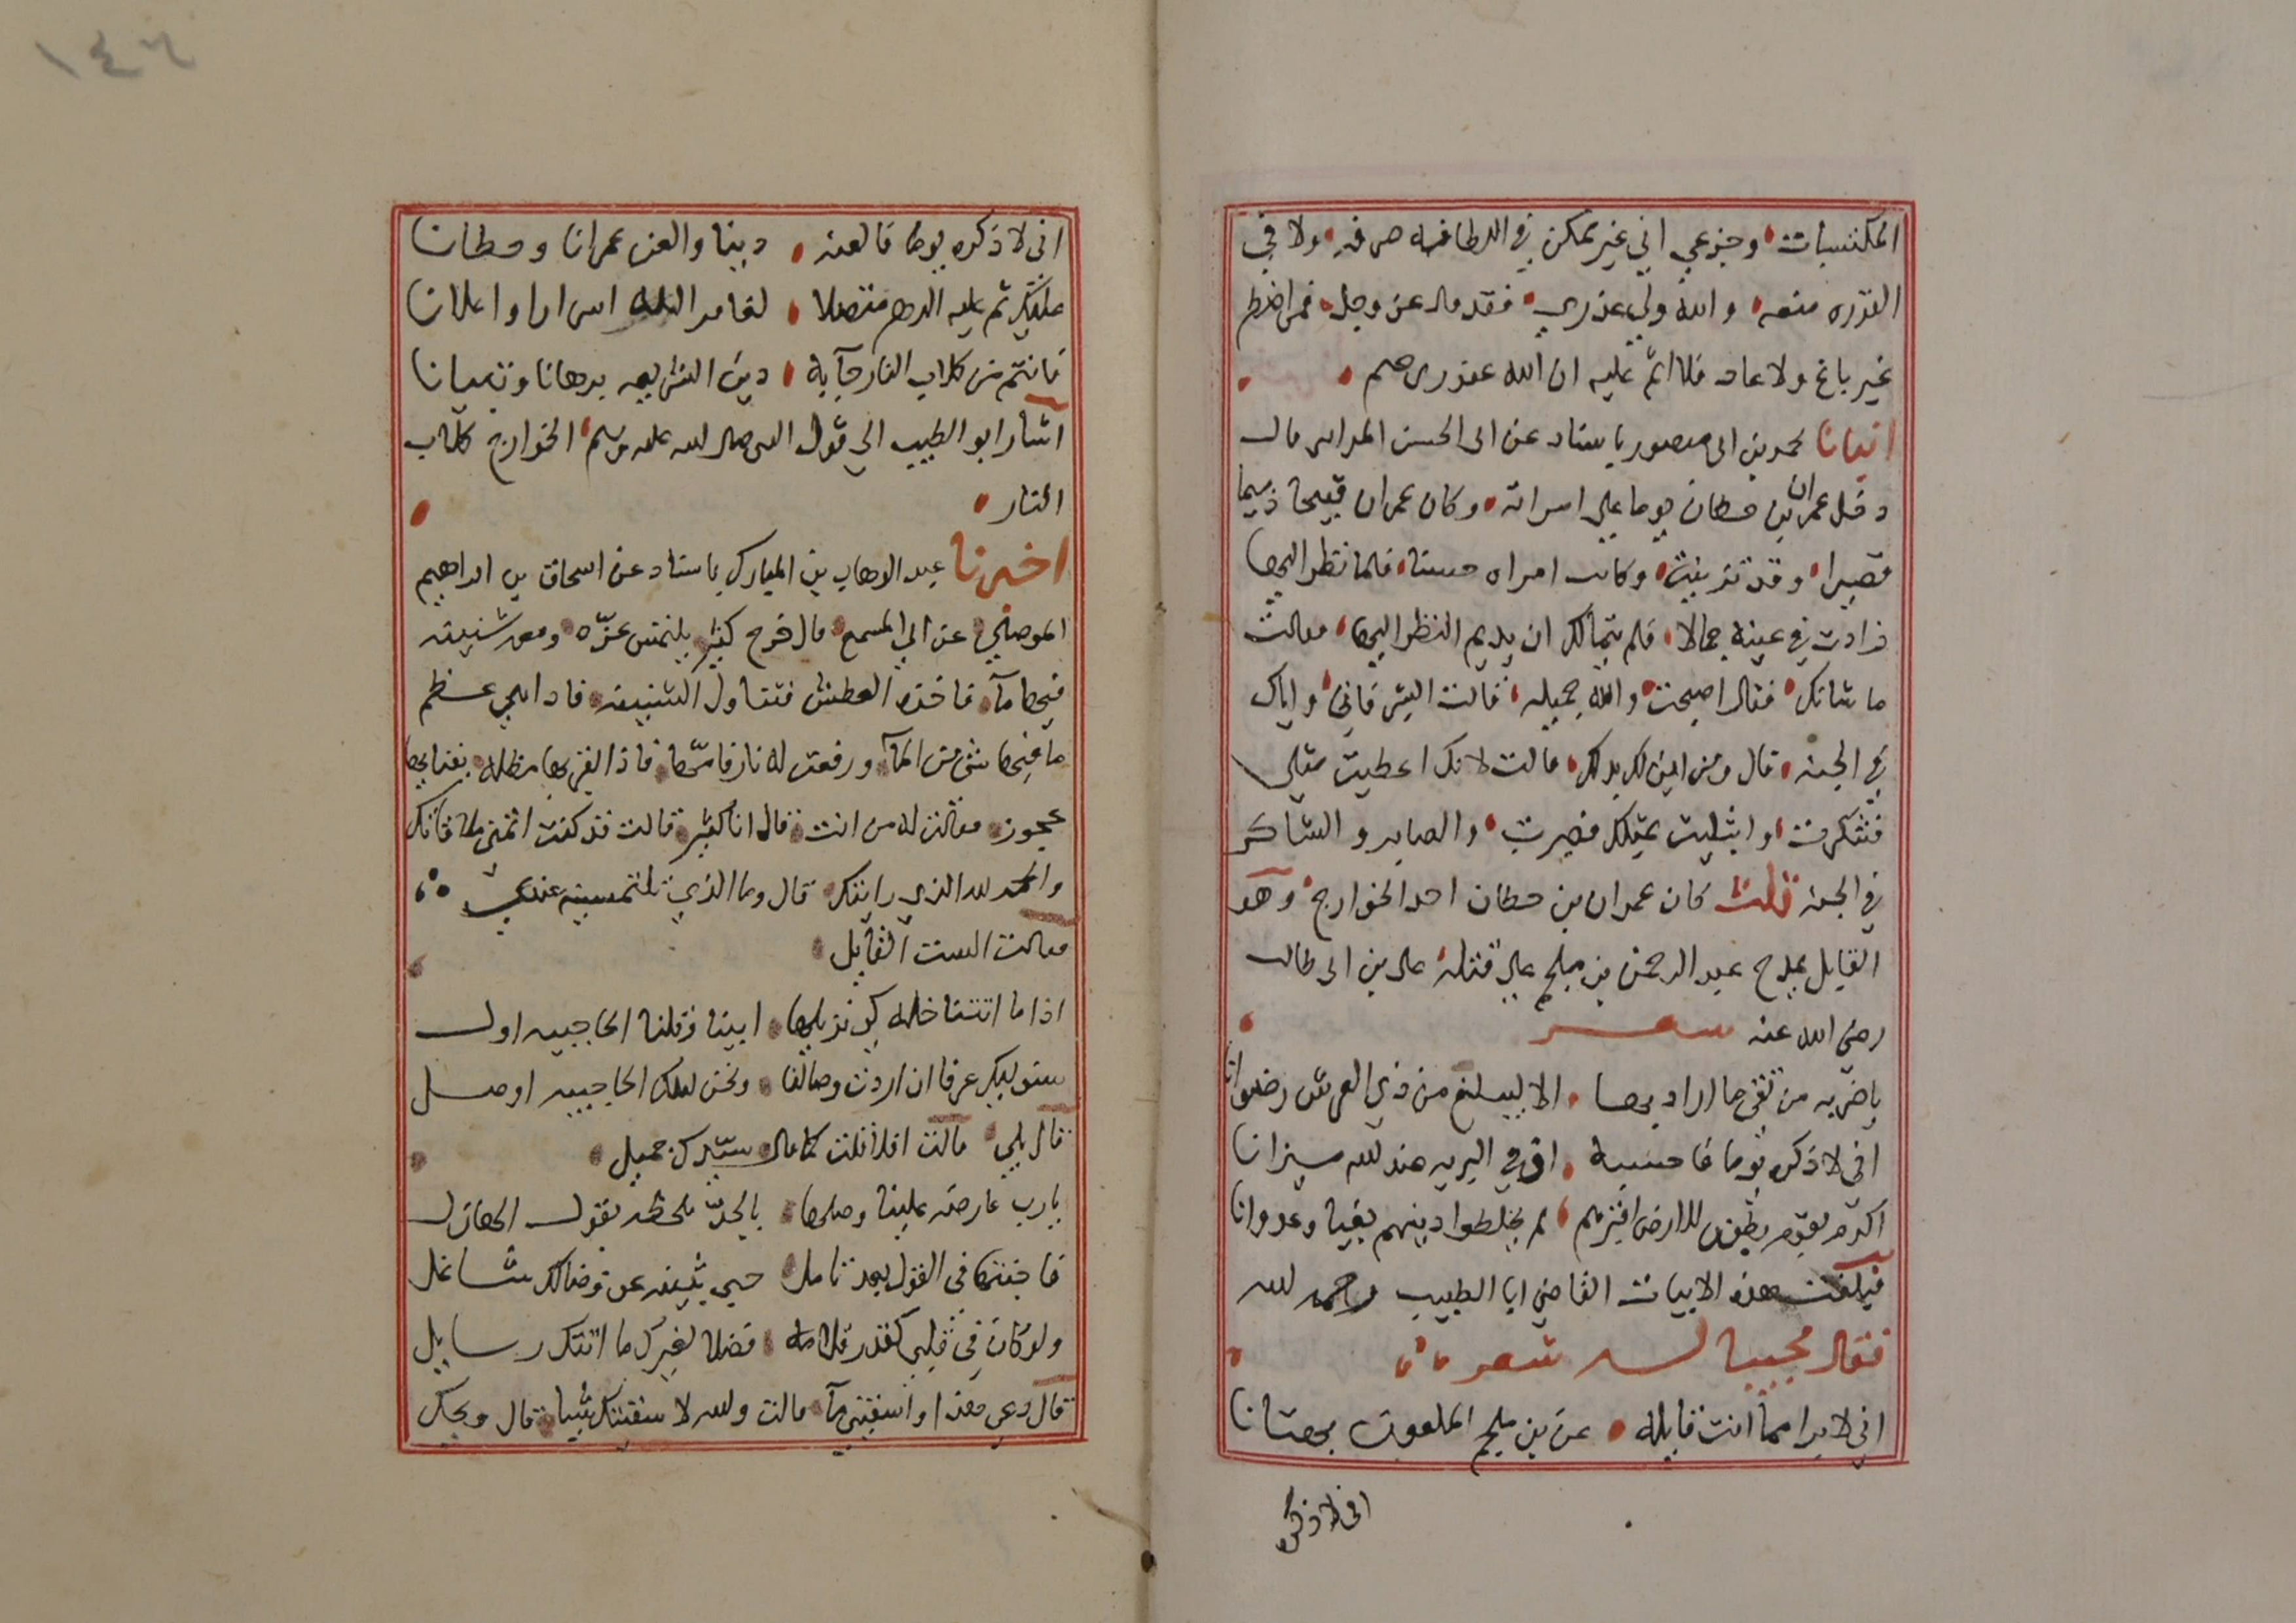 المكتسبات وجزعي اني غير ممكن في الطافه صرفه ولا في
القدره منعه والله ولي عذري فقد قال عز وجل فمن اضطر
غير باغ ولا عاد فلا اثم عليه ان الله غفور رحيم
انبانا محمد بن ابي منصور باسناد عن ابي الحسن المدايني قال
دخل عمران بن حطان يوما علي امراته وكان عمران قبيحا ذميما
قصيرا وقد تزينت وكانت امراه حسنة فلما نظر اليها
زادت في عينه جمالا فلم يتمالك ان يديم النظر اليها فقالت
ما شانك فقال اصبحت والله جميله قالت ابشر فاني واياك
في الجنه قال ومن اين لك ذلك قالت لانك اعطيت مثلي
فشكرت وابتليت بمثلك فصبرت والصابر والشاكر
في الجنه قلت كان عمران بن حطان احد الخوارج وهو
القايل يمدح عبد الرحمن بن ملجم علي قتله علي بن ابي طالب
رضي الله عنه شعر
يا ضربه من تقي ما اراد بها الا ليبلغ من ذي العرش رضوانا
اني لاذكره يوما فاحسبه اوفي البريه عند الله ميزانا
اكرم بقوم بطون الارض اقبرهم لم يخلطوا دينهم بغيا وعدوانا
فبلغت هذه الابيات القاضي ابا الطيب رحمه الله
فقال مجيبا له شعر
اني لابرا مما انت قايله عن بن ملجم الملعون بهتانا
اني لاذكره
١٤٦
اني لاذكره يوما فالعنه دينا والعن عمرانا وحطانا
عليك ثم عليه الدهر متصلا لعاين الله اسرارا واعلانا
فانتم من كلاب النار جآ به دين الشريعه برهانا وتبيانا
اشار ابو الطيب الي قول النبي صلى الله عليه وسلم الخوارج كلاب
النار
اخبرنا عبد الوهاب بن المبارك باسناد عن اسحاق بن ابراهيم
الموصلي عن ابي المسمع قال خرج كثير يلتمس عزّه ومعه شنينه
فيها مآ فاخذه العطش فتناول الشنينه فاذا هي عظم
ما فيها شي من المآ ورفعت له نار فامّها فاذا بقربها مظله بفنايها
عجوز فقالت له من انت قال انا كثير قالت قد كنت اتمنى ملاقاتك
والحمد لله الذي رايتك قال وما الذي تلتمسينه عندي
فقالت الست القايل
اذا ما اتتنا خله كي تزيلها ابينا وقلنا الحاجبيه اول
سنوليك عرفا ان اردت وصالنا ونحن لتلك الحاجبيه اوصل
قال بلي قالت افلا قلت كما قال سيّدك جميل
يا رب عارضة علينا وصلها بالجدّ تخلطه بقول الهازل
فاجبتها في القول بعد تامل حبي بثينه عن وصالك شاغل
ولو كان في قلبي كقدر قلامه فضلا لغيرك ما اتتك رسايل
قال دعي هذا واسقيني مآ قالت والله لا سقيتك شيا قال ويحك